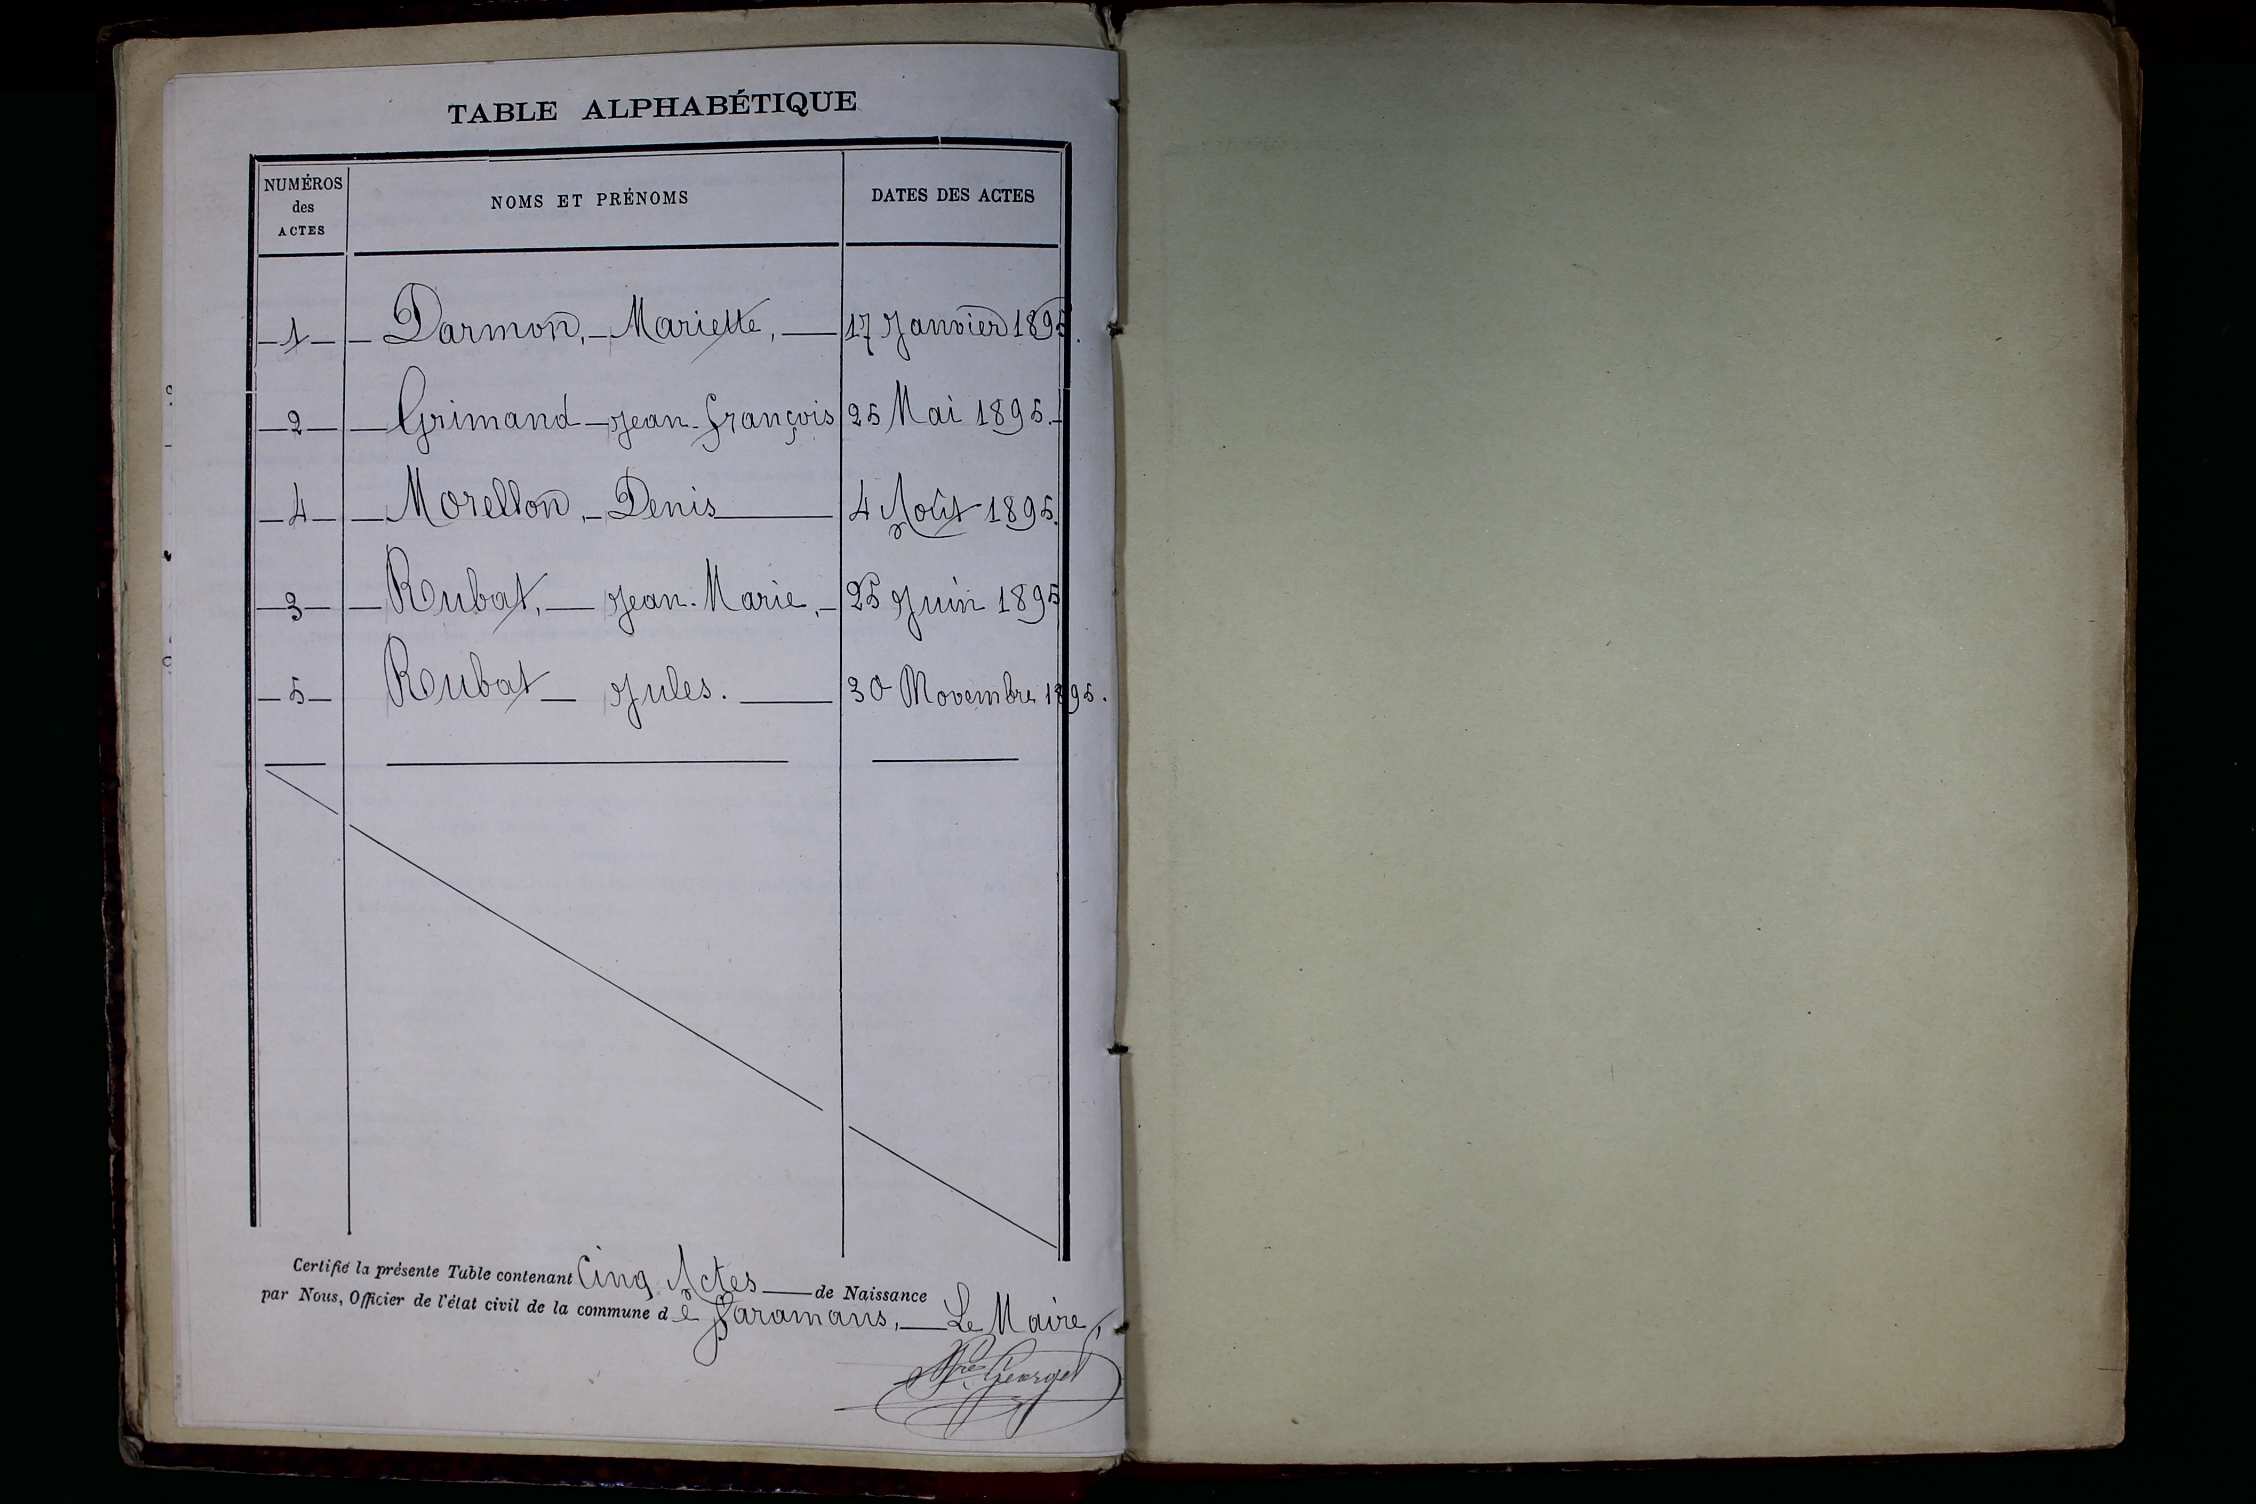 TABLE ALPHABÉTIQUE
NUMÉROS des ACTES NOMS ET PRÉNOMS DATES DES ACTES
1 Darmon, Mariette, 17 Janvier 1895.
2 Grimand Jean-François 25 Mai 1895.
4 Morellon, Denis 4 Août 1895.
3 Rubat, Jean-Marie, 25 Juin 1895
5 Rubat Jules. 30 Novembre 1895.
Certifié la présente Table contenant Cinq Actes de Naissance
par Nous, Officier de l'état civil de la commune de Faramans, Le Maire,
Georges